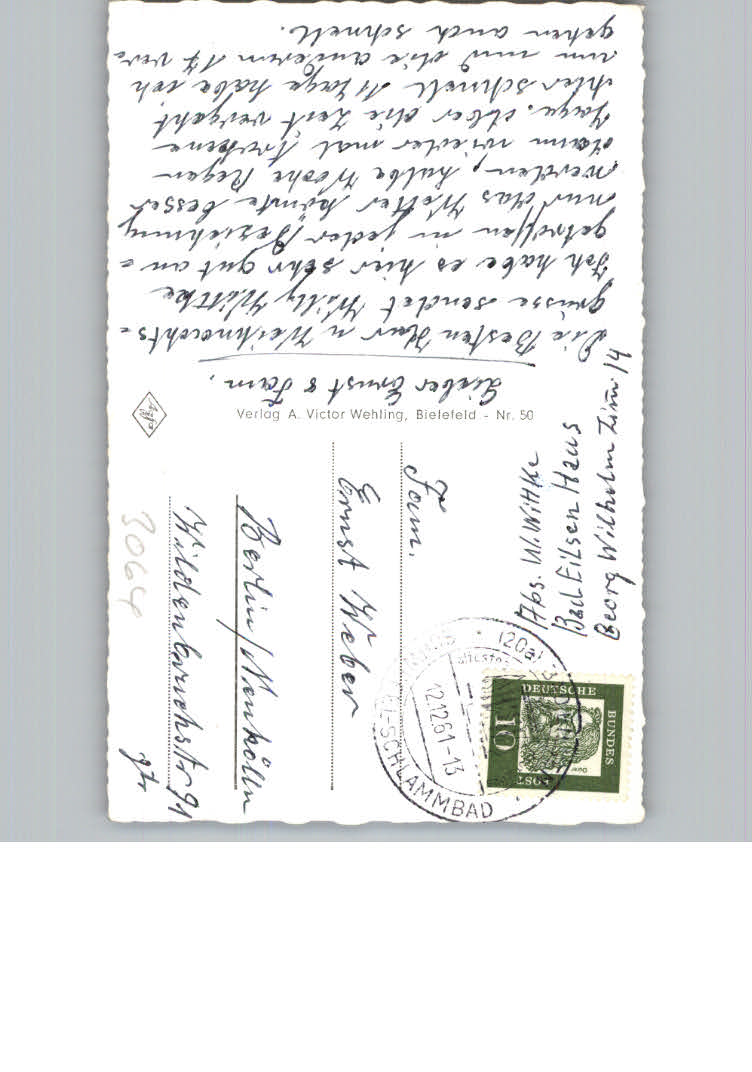 Lieber Ernst & Fam.
Die Besten Kur u Weihnachts=
grüsse sendet Willy Wittke
Ich habe es hier sehr gut an=
getroffen in jeder Beziehung
nur das Wetter könnte besser
werden, halbe Woche Regen
dann wieder mal trockene
Tage. Aber die Zeit vergeht
hier schnell 11 Tage habe ich
um und die anderen 17 ver=
gehen auch schnell.
Verlag A. Victor Wehling, Bielefeld - Nr. 50
Agfa
Abs. W. Wittke
Bad Eilsen Haus
Georg Wilhelm Zim. 14
Fam.
Ernst Weber
Berlin/Neukölln
Wildenbruchstr 91
3064
(20a)
12.12.61-13
SCHLAMMBAD
DEUTSCHE
BUNDES
POST
10
Dürer